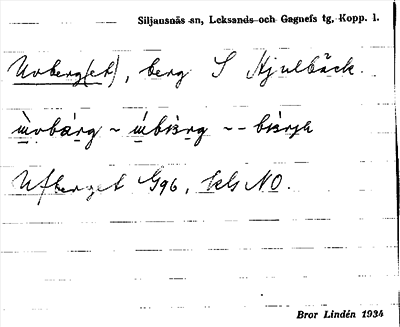 Siljansnäs sn, Leksands och Gagnefs tg, Kopp. l.
Uvberg(et), berg S Hjulbäck.
ùvbärg ~ úbärg ~
Ufberget G96, kls NO.
Bror Lindén 1934